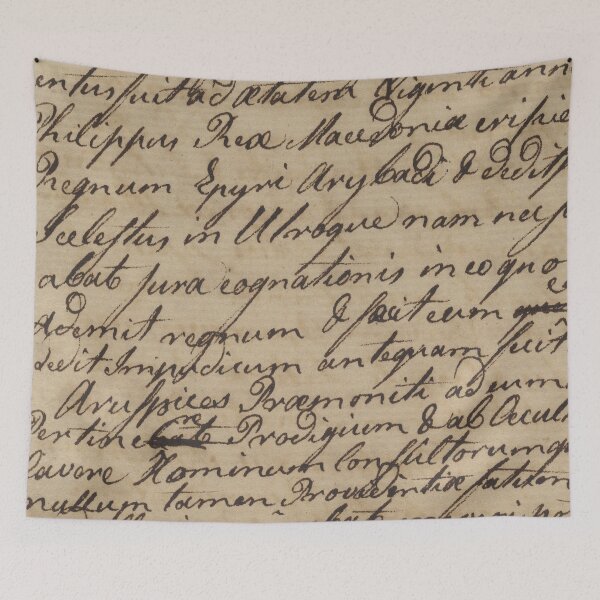 entus fuit ad ætatem Viginti ann
Philippus Rex Macedoniæ eripie
Regnum Epyri Arybadi & dedit
Scelestus in Utroque nam ne
abat jura cognationis in eo quo
Ademit regnum & fecit eum
dedit Impudicum antequam fuit
Aruspices Præmoniti ad eum
Pertinere Prodigium & ab Occul
Cavere Hominum Consultorum
nullum tamen Providentiæ